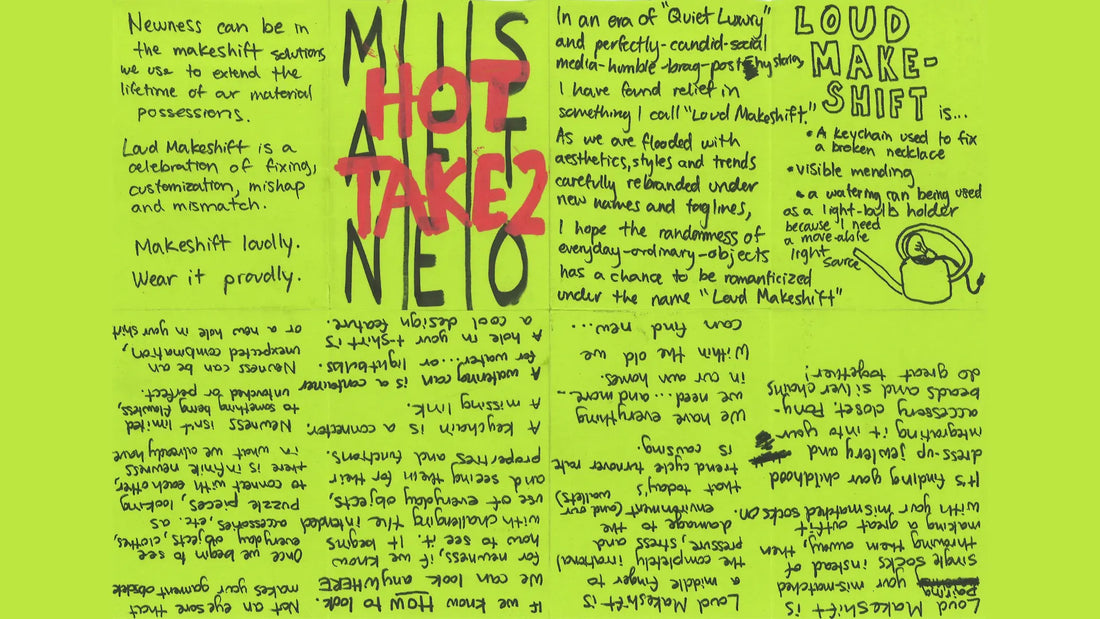 M I S
A F T
N E O
HOT
TAKE 2
In an era of "Quiet Luxury"
and perfectly-candid-social
media-humble-brag-posts hy stories,
I have found relief in
something I call "Loud Makeshift."
As we are flooded with
aesthetics, styles and trends
carefully rebranded under
new names and taglines,
I hope the randomness of
everyday-ordinary-objects
has a chance to be romanticized
under the name "Loud Makeshift"
LOUD
MAKE-
SHIFT is...
• A keychain used to fix
a broken necklace
• visible mending
• a watering can being used
as a light-bulb holder
because I need
a move-able
light source
Loud Makeshift is
your mismatched
single socks instead of
throwing them away, then
making a great outfit
with your mismatched socks on.
It's finding your childhood
dress-up jewelery and
integrating it into your
accessory closet. Pony-
beads and silver chains
do great together!
Loud Makeshift is
a middle finger to
the completely irrational
pressure, stress and
damage to the
environment (and our wallets)
that today's
trend cycle turnover rate
is causing.
We have everything
we need... and more...
in our own homes.
Within the old we
can find new...
If we know HOW to look.
we can look anyWHERE
for newness, if we know
how to see it. It begins
with challenging the intended
use of everyday objects,
and seeing them for their
properties and functions.
A keychain is a connector.
A missing link.
A watering can is a container
for water.... or lightbulbs.
A hole in your t-shirt is
a cool design feature.
Not an eyesore that
makes your garment obsolete
Once we begin to see
everyday objects, clothes,
accessories, etc. as
puzzle pieces, looking
to connect with each other,
there is infinite newness
in what we already have
Newness isn't limited
to something being flawless,
untouched or perfect.
Newness can be an
unexpected combination,
or a new hole in your shirt
Newness can be in
the makeshift solutions
we use to extend the
lifetime of our material
possessions.
Loud Makeshift is a
celebration of fixing,
customization, mishap
and mismatch.
Makeshift loudly.
Wear it proudly.